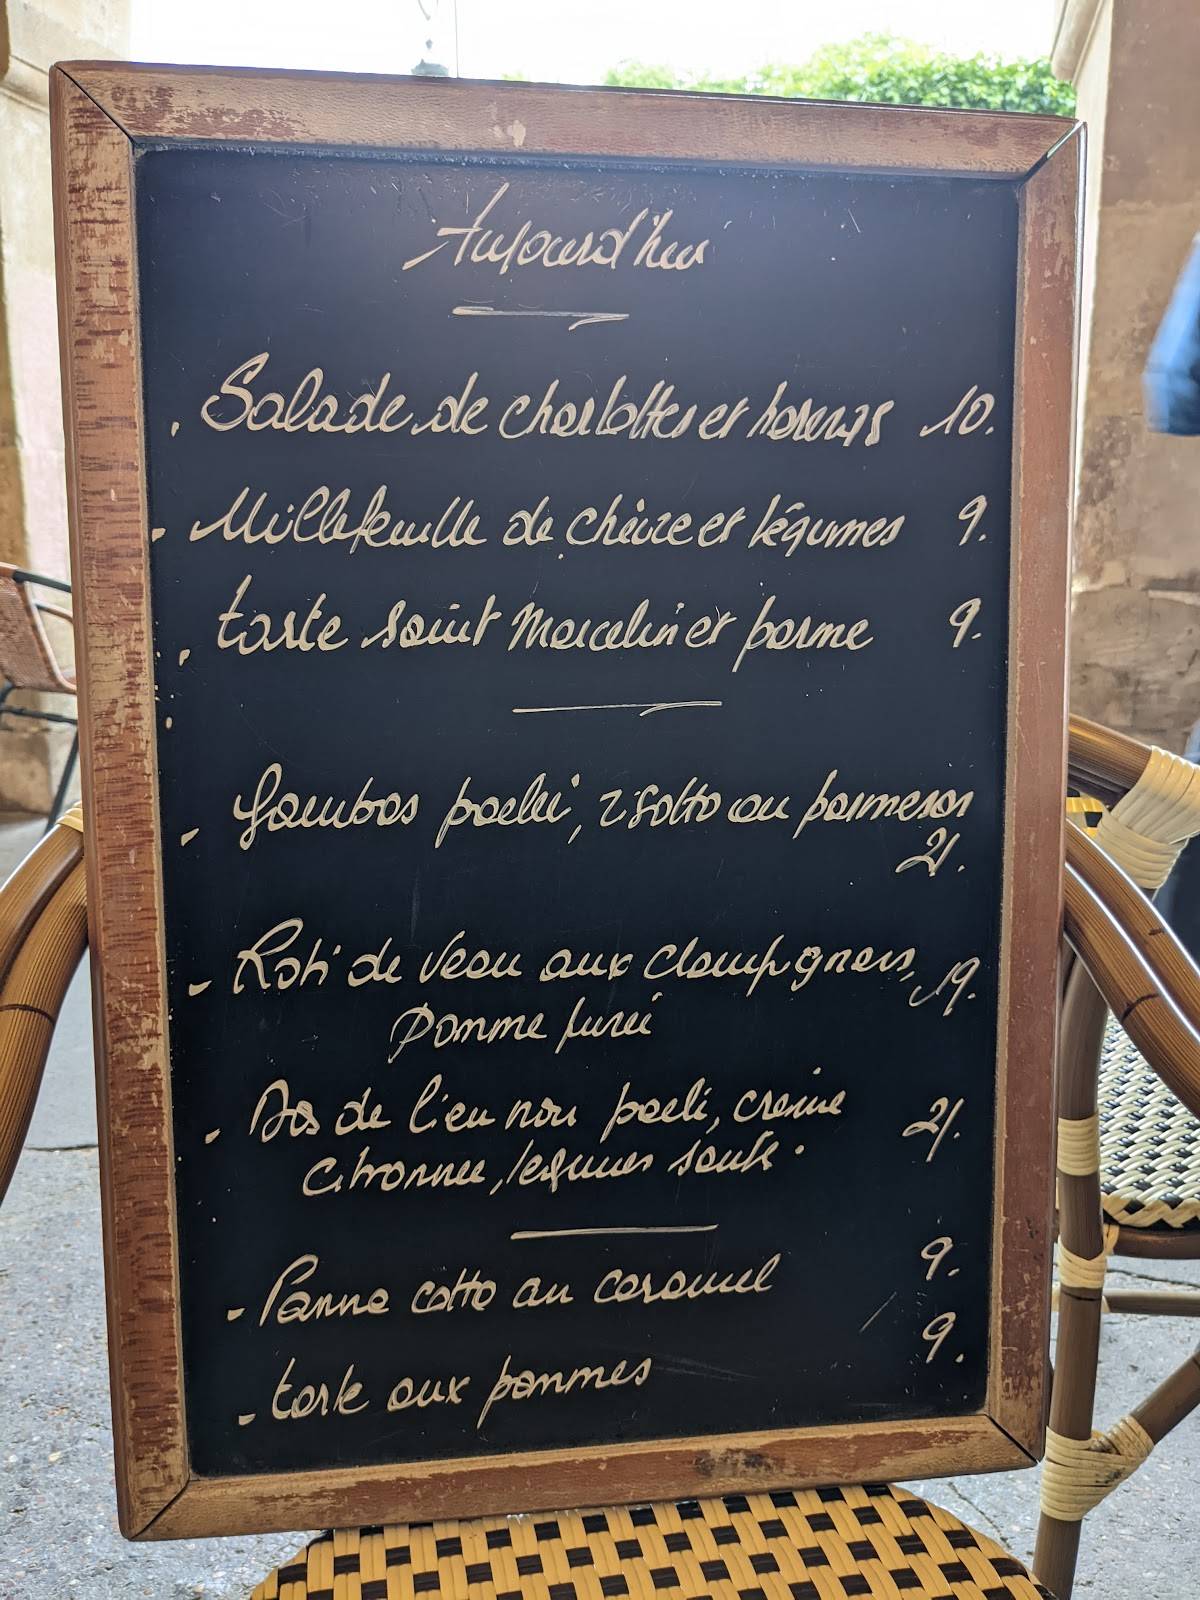 Aujourd'hui
Salade de charlottes et harengs 10.
- Millefeuille de chèvre et légumes 9.
tarte saint marcelin et parme 9.
- Gambas poelé, risotto au parmesan
21.
- Roti de veau aux champignons, 19.
pomme purée
- Dos de lieu noir poelé, crème 21.
citronnée, legumes sauté.
- Panna cotta au caramel 9.
- tarte aux pommes 9.